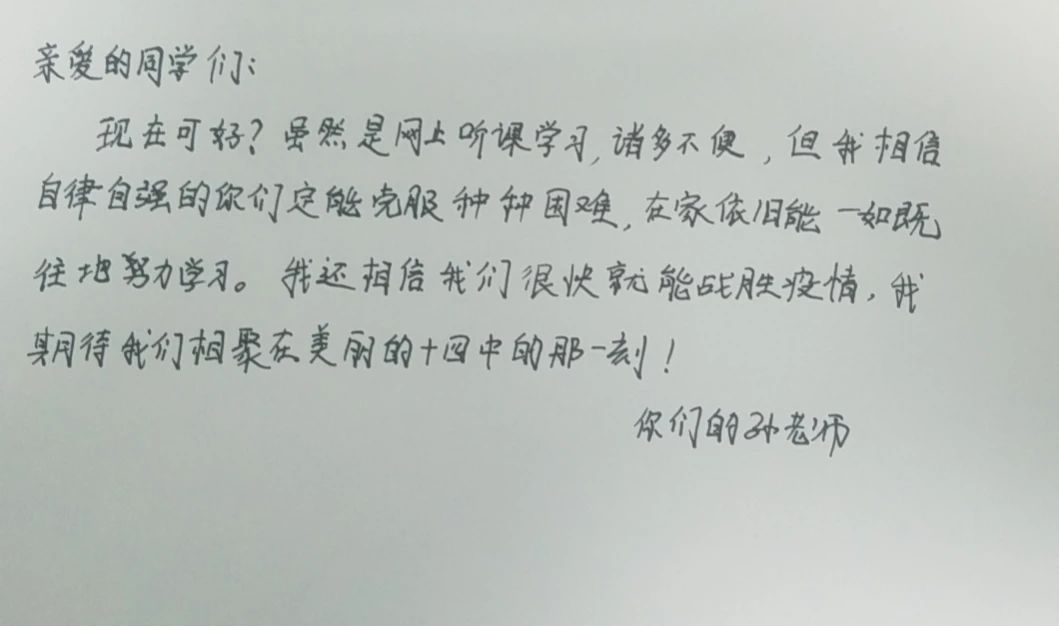 亲爱的同学们：
现在可好？虽然是网上听课学习，诸多不便，但我相信
自律自强的你们定能克服种种困难，在家依旧能一如既
往地努力学习。我还相信我们很快就能战胜疫情，我
期待我们相聚在美丽的十四中的那一刻！
你们的孙老师